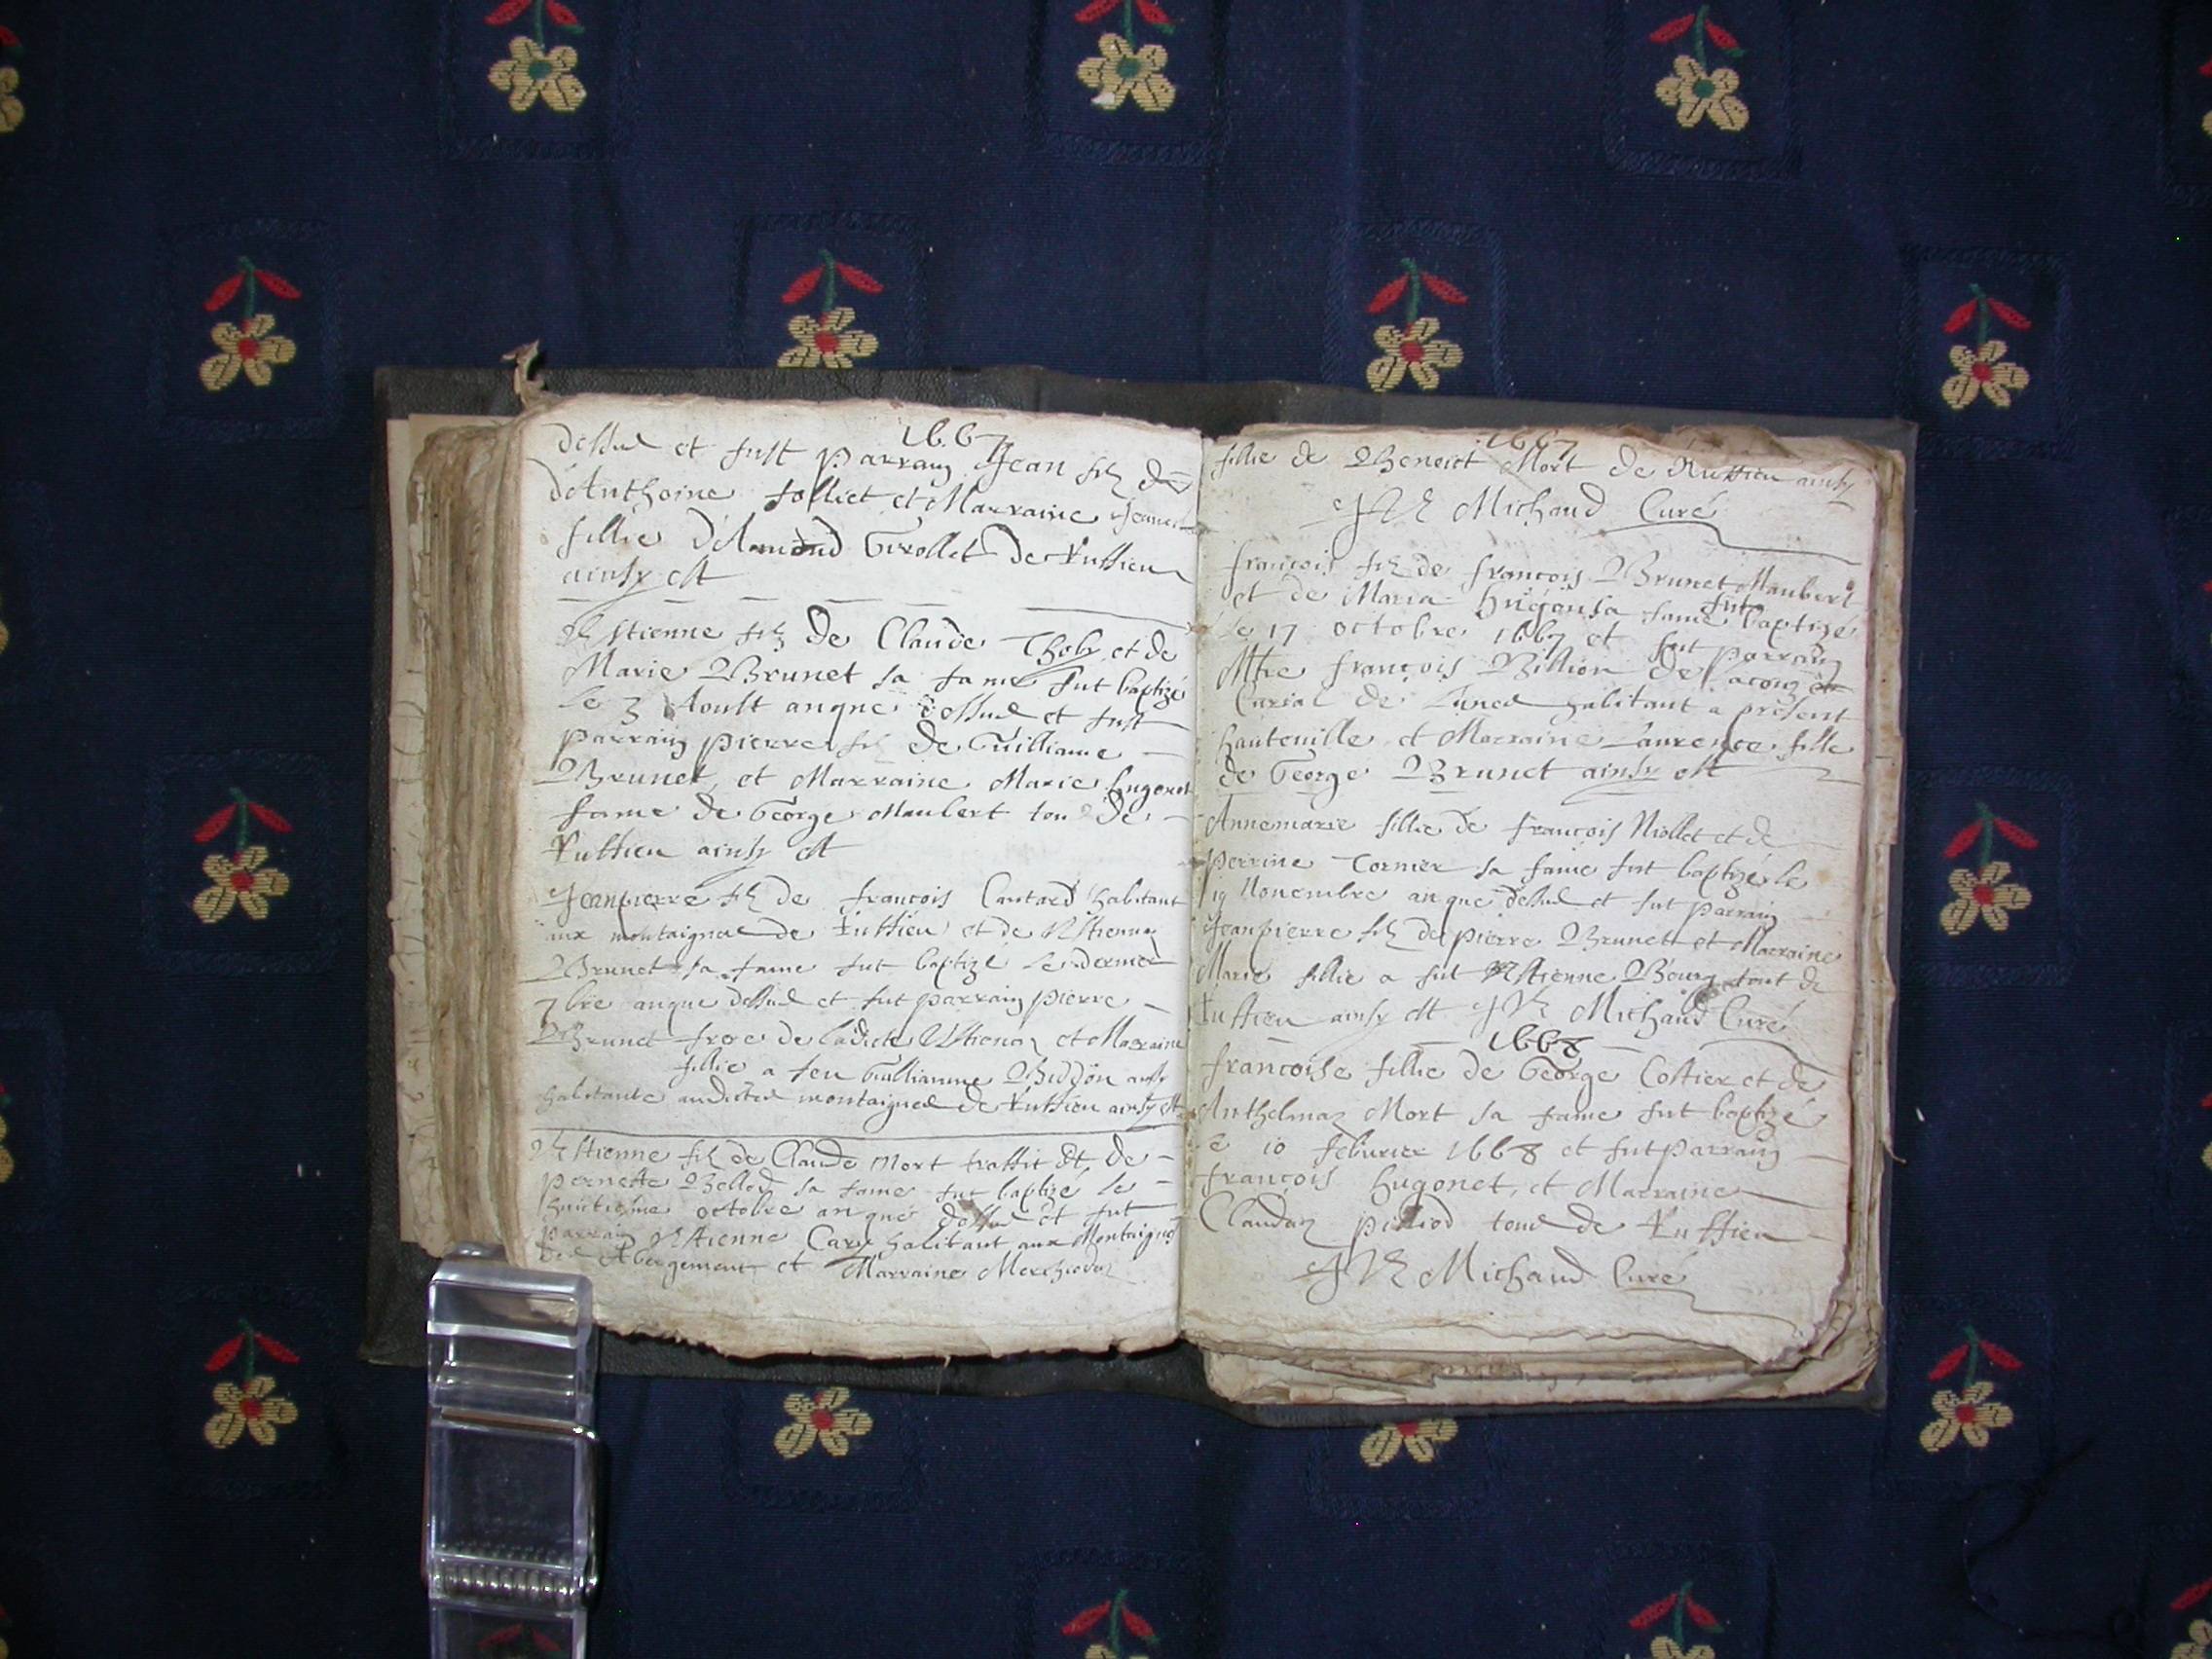 1667
dessus et fust parrain Jean filz de
d'Anthoine Jolliet et Marraine
fillie d'Amond Girollet de Ruffieu
ainsy est
Estienne filz de Claude Thoby et de
Marie Brunet sa fame fut baptizé
le 3 Aoust anque dessus et fust
parrain pierre filz de Guilliame
Brunet, et Marraine Marie hugonet
fame de George Maubert tous de
Ruffieu ainsy est
Jeanpierre filz de francois Cantard habitant
aux montaignes de Ruffieu et de Estienna
Brunet sa fame fut baptizé le dernier
7bre anque dessus et fut parrain pierre
Brunet frere de ladicte Estiena et Marraine
fillie a feu Guilliaume ausy
habitante audictes montaignes de Ruffieu ainsy est
Estienne filz de Claude Mort traffit et de
pernette Bellod sa fame fut baptizé le
huictiesme octobre anque dessus et fut
parrain Estienne Cary habitant aux Montaignes
des Abergement et Marraine
1667
fillie de Benoict Mort de Ruffieu ainsy
Michaud Curé
françois filz de françois Brunet Maubert
et de Maria hugon sa fame fut baptizé
le 17 octobre 1667 et fut parrain
Mtre françois Billion de
Curial de habitant a present
hauteuille et Marraine Laurence fille
de George Brunet ainsy est
Annemarie fillie de françois Niollet et de
perrine Cornier sa fame fut baptizé le
19 Nouembre anque dessus et fut parrain
Jeanpierre filz de pierre Brunet et Marraine
Marie fillie a fut Estienne Bourg tout de
Ruffieu ainsy est Michaud Curé
1668
françoise fillie de George Costier et de
Anthelmaz Mort sa fame fut baptizé
le 10 febvrier 1668 et fut parrain
françois hugonet, et Marraine
Claudaz pilliod tous de Ruffieu
Michaud Curé